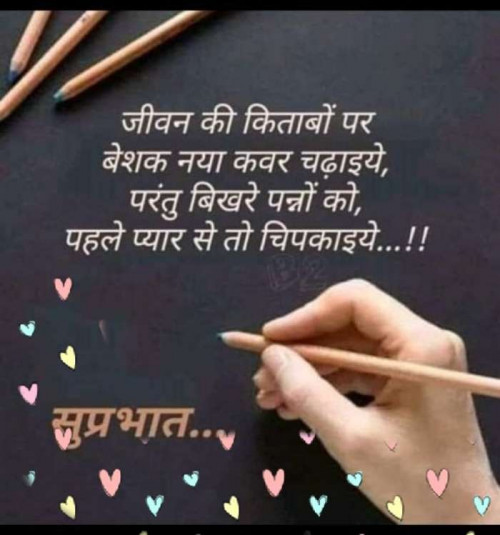 जीवन की किताबों पर
बेशक नया कवर चढ़ाइये,
परंतु बिखरे पन्नों को,
पहले प्यार से तो चिपकाइये...!!
सुप्रभात...